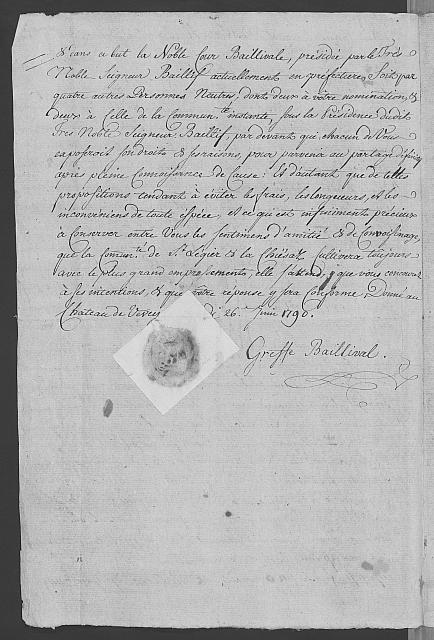 dans ce but la Noble Cour Baillivale, présidée par le Très
Noble Seigneur Baillif actuellement en préfecture, Soit par
quatre autres Personnes Neutres, dont deux à vôtre nomination, &
deux à Celle de la Commun.té instante, sous la Présidence dudit
Très Noble Seigneur Baillif, par devant qui chacun de Vous
exposeroit son droit & ses raisons, pour parvenir au partage désiré
après pleine Connoissance de Cause: Et d'autant que de telles
propositions tendant à éviter les frais, les longueurs, et les
inconveniens de toute espèce, et ce qui est infiniment précieux
à Conserver entre Vous les Sentimens d'amitié & de bon voisinage,
que la Comun.té de St. Légier & la Chiésaz Cultivera toujours
avec le plus grand empressement, elle s'attend, que vous concourrez
à ses intentions, & que vôtre réponse y sera Conforme. Donné au
Château de Vevey di 26. Juin 1790.
Greffe Baillival.